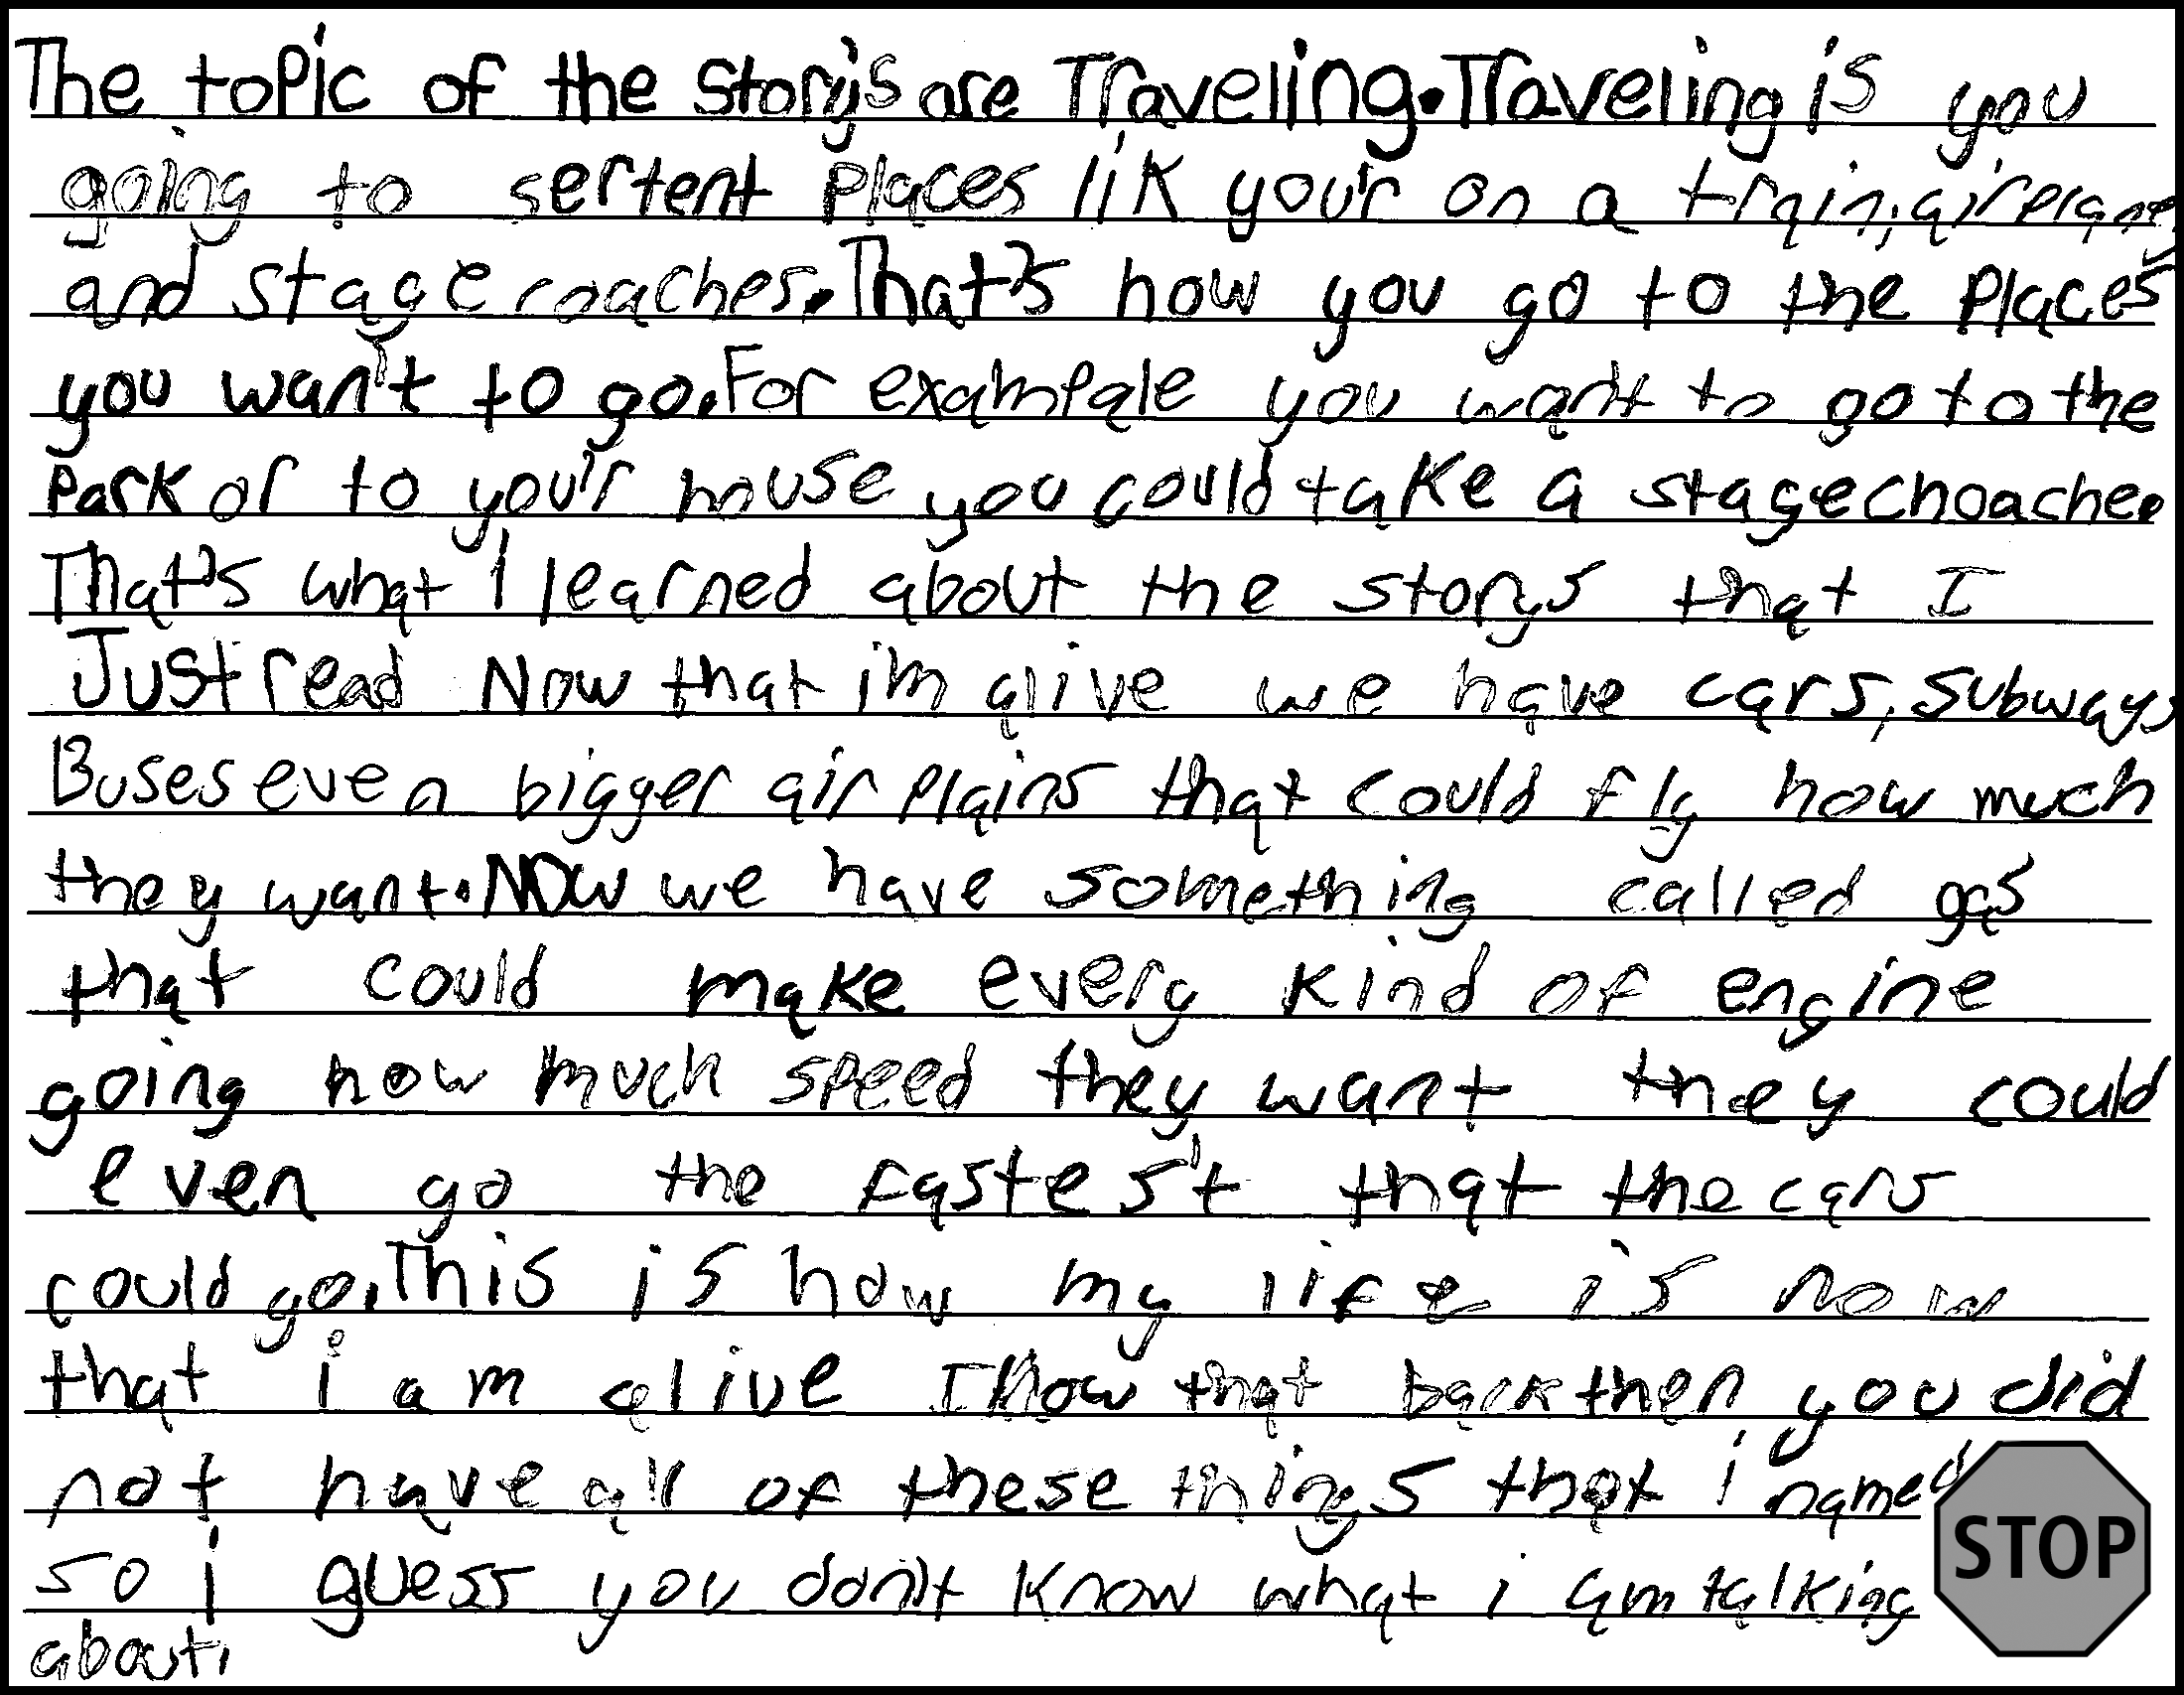 The topic of the story's are Traveling. Traveling is you
going to sertent places lik you'r on a train, airplane,
and stage coaches. That's how you go to the places
you wan't to go. For exampale you wan't to go to the
park or to you'r house you could take a stagechoache.
That's what I learned about the storys that I
Just read Now that i'm alive we have cars, subways
Buses even bigger air plains that could fly how much
they want. Now we have something called gas
that could make every kind of engine
going how much speed they want they could
even go the fastes't that the cars
could go. This is how my life is now
that i am alive I know that back then you did
not have all of these things that i named
so i guess you don't know what i am talking
about.
STOP